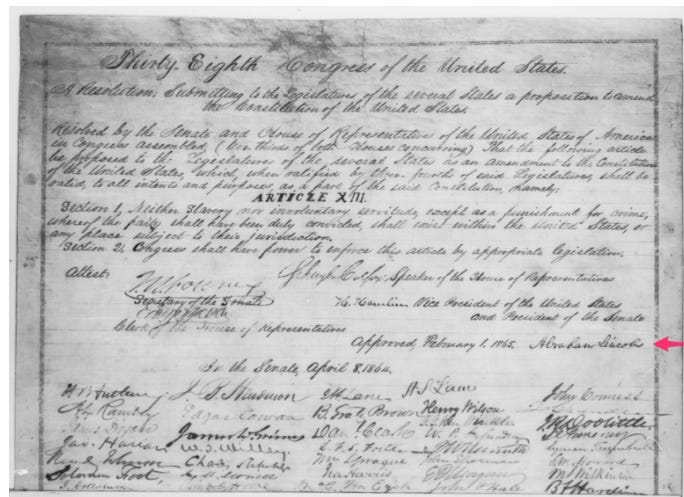 Thirty-Eighth Congress of the United States.
A Resolution: Submitting to the Legislatures of the several States a proposition to amend
the Constitution of the United States.
Resolved by the Senate and House of Representatives of the United States of America
in Congress assembled, (two thirds of both Houses concurring) That the following article
be proposed to the Legislatures of the several States as an amendment to the Constitution
of the United States, which, when ratified by three fourths of said Legislatures, shall be
valid, to all intents and purposes, as a part of the said Constitution, namely:
ARTICLE XIII.
Section 1. Neither Slavery nor involuntary servitude, except as a punishment for crime,
whereof the party shall have been duly convicted, shall exist within the United States, or
any place subject to their jurisdiction.
Section 2. Congress shall have power to enforce this article by appropriate legislation.
Attest:
Schuyler Colfax, Speaker of the House of Representatives
J. W. Forney
Secretary of the Senate
H. Hamlin Vice President of the United States
and President of the Senate
Clerk of the House of Representatives
Approved, February 1. 1865. Abraham Lincoln
In the Senate, April 8, 1864.
J. H. Lane John Conness
B. Gratz Brown Henry Wilson
Edgar Cowan
James W. Grimes Dan. Clark
Jas. Harlan W. T. Willey
Wm. Sprague John Sherman
Solomon Foot
John P. Hale